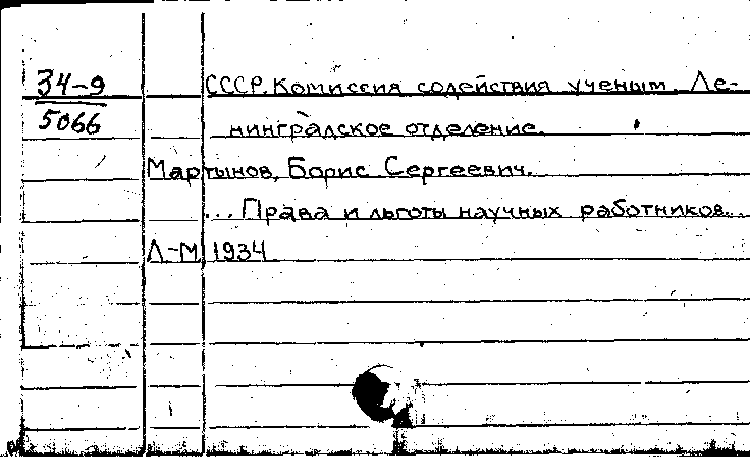 34-9 СССР. Комиссия содействия ученым Ле-
5066 нинградское отделение.
Мартынов, Борис Сергеевич.
... Права и льготы научных работников...
Л-М 1934